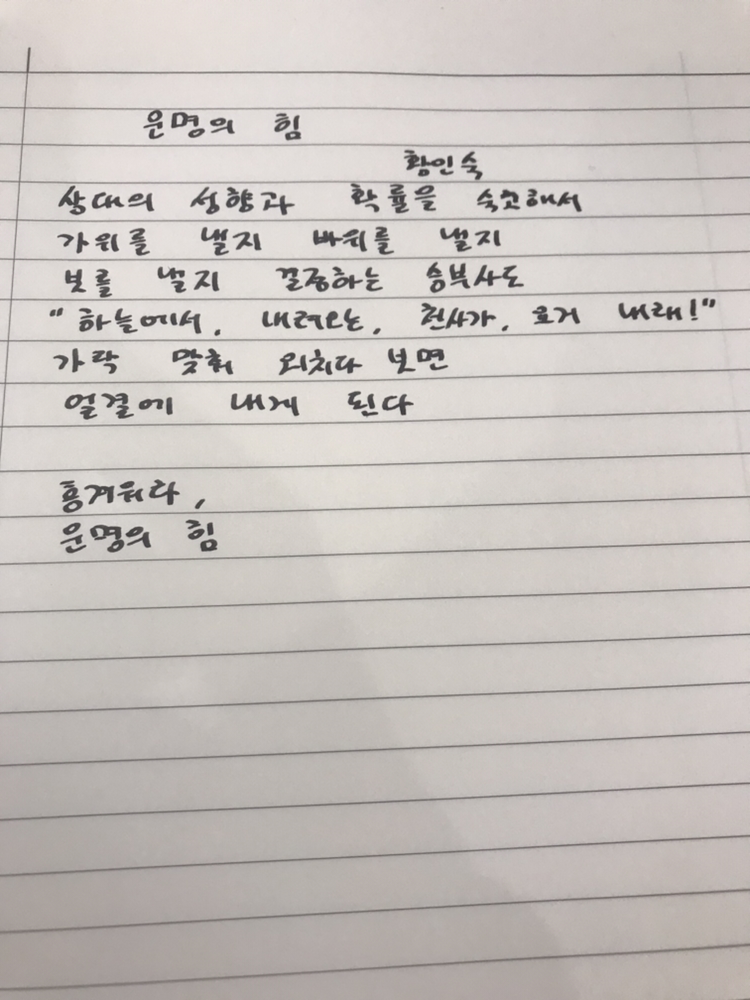 운명의 힘
황인숙
상대의 성향과 확률을 숙고해서
가위를 낼지 바위를 낼지
보를 낼지 결정하는 승부사도
"하늘에서, 내려오는, 천사가, 요거 내래!"
가락 맞춰 외치다 보면
얼결에 내게 된다
흥겨워라,
운명의 힘